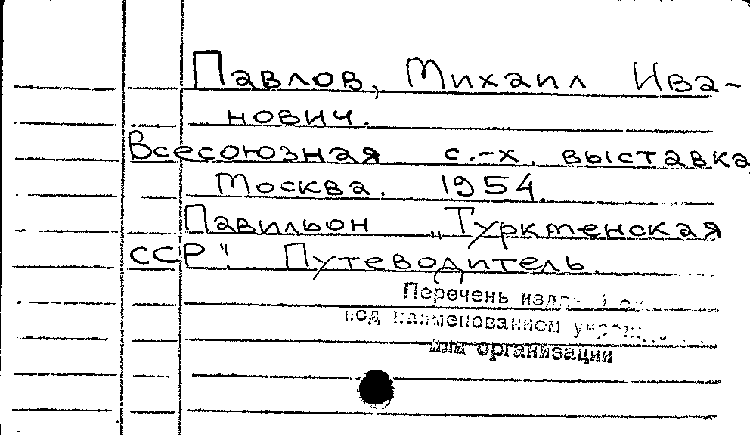 Павлов, Михаил Ива-
нович.
Всесоюзная с.-х. выставка
Москва. 1954.
Павильон "Туркменская
ССР". Путеводитель.
Перечень
под наименованием
или организации